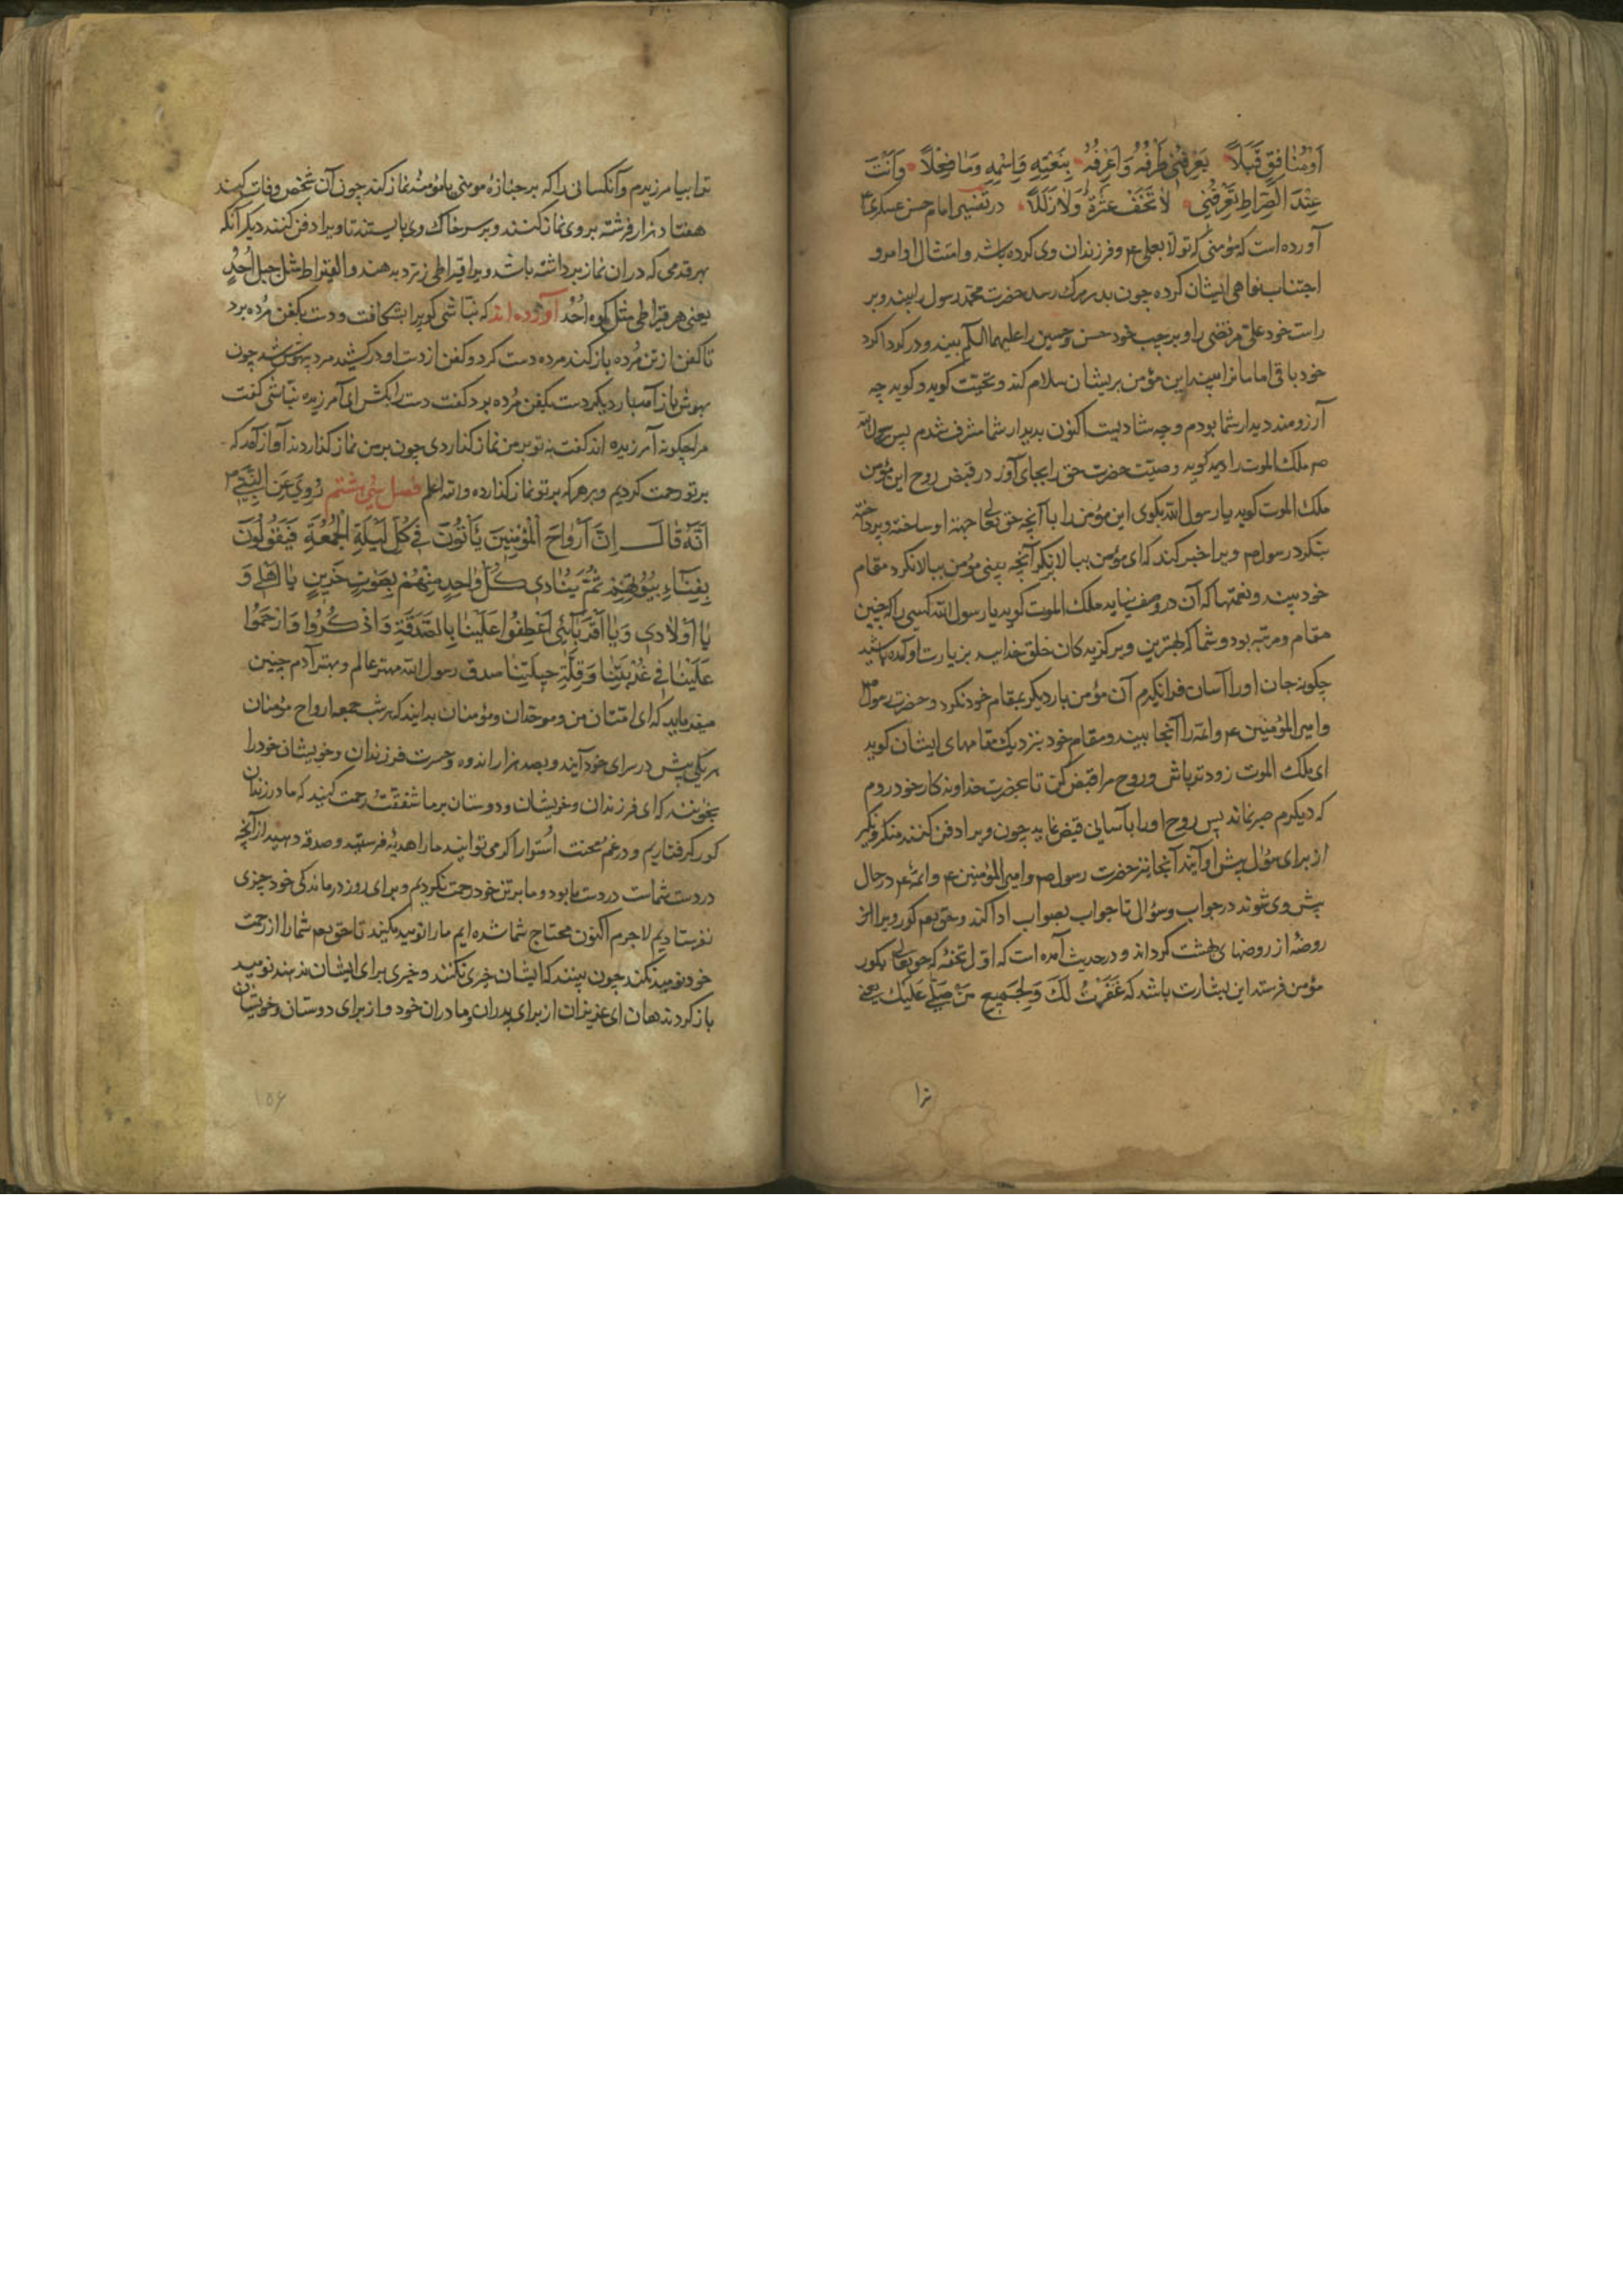 اَوْمُنٰافِقٍ قَبَلاً یَعْرِفُنٖی طَرْفُهُ وَاَعْرِفُهُ بِنَعْتِهِ وَاِسْمِهِ وَمٰا فَعَلاً وَاَنْتَ
عِنْدَ الصِّرٰاطِ تَعْرِفُنٖی لاٰ تَخَفْ عَثْرَةً وَلاٰ زَلَلاً در تفسیر امام حسن عسکری ع
آورده است که مؤمنی که تولا بعلی ع وفرزندان وی کرده باشد و امتثال اوامر و
اجتناب نواهی ایشان کرده چون بدر مرک رسد حضرت محمد رسول را بیند و بر
راست خود علی مرتضی را و بر چپ خود حسن و حسین را علیهما السلم بیند و در کرداکرد
خود باقی امامانرا بیند این مؤمن بریشان سلام کند و تحیت کوید و کوید چه
آرزومند دیدار شما بودم و چه شادیست اکنون بدیدار شما مشرف شدم پس رسول الله
ص ملک الموت را دید کوید وصیت حضرت حق را بجای آور در قبض روح این مؤمن
ملک الموت کوید یا رسول الله بکوی این مؤمن را با آنچه حق تعالی جهة او ساخته و پرداخته
بنکرد رسول ص ویرا خبر کند که ای مؤمن ببالا بنکر آنچه بینی مؤمن ببالا نکرد مقام
خود بیند و نعمتها که آن در وصف نیاید ملک الموت کوید یا رسول الله کسی را که چنین
مقام و مرتبه بود و شما که بهترین و برکزیدکان خلق خدایید بزیارت او آمده باشید
چکونه جان او را آسان فرانکیرم آن مؤمن بار دیکر بمقام خود نکرد و حضرت رسول ص
و امیر المؤمنین ع و ائمه را آنجا بیند و مقام خود نزدیک مقامهای ایشان کوید
ای ملک الموت زودتر باش و روح مرا قبض کن تا بحضرت خداوندکار خود روم
که دیکرم صبر نماند پس روح او را بآسانی قبض نماید چون ویرا دفن کنند منکر و نکیر
از برای سؤال پیش او آیند آنجا نیز حضرت رسول ص و امیر المؤمنین ع و ائمه ع در حال
پیش وی شوند در جواب و سؤال تا جواب بصواب ادا کند و حق تعم کور ویرا از
روضهٔ از روضهای بهشت کرداند و در حدیث آمده است که اول تحفهٔ که حق تعالی بکور
مؤمن فرستد این بشارت باشد که غَفَرْتُ لَكَ وَلِجَمیعِ مَنْ صَلّٰی عَلَیْكَ یعنی
ترا
ترا بیامرزیدم و آنکسانی را که بر جنازهٔ مومنی یا مؤمنهٔ نماز کند چون آن شخص وفات کند
هفتاد هزار فرشته بر وی نماز کنند و بر سر خاک وی بایستند تا ویرا دفن کنند دیکر آنکه
بهر قدمی که در ان نماز برداشته باشد ویرا قیراطی زر بدهند و القیراط مثل جبل اُحُد
یعنی هر قیراطی مثل کوه اُحُد آورده اند که نباشی کوریرا بشکافت و دست بکفن مرده برد
تا کفن از تن مرده باز کند مرده دست کرد و کفن از دست او در کشید مرد بیهوش شد چون
بهوش باز آمد بار دیکر دست بکفن مرده برد کفت دست را بکش ای آمرزیده نباشی کفت
مرا چکونه آمرزیده اند کفت نه تو بر من نماز کذاردی چون بر من نماز کذاردند آواز آمد که
بر تو رحمت کردیم و بر هر که بر تو نماز کذارده والله اعلم فصل سی و هشتم رُوِیَ عَنِ النَّبِیِّ ص
اَنَّهُ قٰالَ اِنَّ اَرْوٰاحَ الْمُؤْمِنینَ یَأْتُونَ فی کُلِّ لَیْلَةِ الْجُمُعَةِ فَیَقُولُونَ
بِفِنٰاءِ بُیُوتِهِمْ ثُمَّ یُنٰادی کُلُّ وٰاحِدٍ مِنْهُمْ بِصَوْتٍ حَزینٍ یٰا اَهْلی وَ
یٰا اَوْلاٰدی وَیٰا اَقْرِبٰائی اَعْطِفُوا عَلَیْنٰا بِالصَّدَقَةِ وَاذْکُرُوا وَارْحَمُوا
عَلَیْنٰا فی غُرْبَتِنٰا وَقِلَّةِ حیلَتِنٰا صدق رسول الله مهتر عالم و بهتر آدم چنین
میفرماید که ای امتان من و موحدان و مؤمنان بدانید که هر شب جمعه ارواح مؤمنان
هر یکی پیش در سرای خود آیند و بصد هزار اندوه و حسرت فرزندان و خویشان خود را
بخوانند که ای فرزندان و خویشان و دوستان بر ما شفقت و رحمت کنید که ما در زندان
کور کرفتاریم و در غم و محنت استوار اکر می توانید ما را هدیهٔ فرستید و صدقه دهید از آنچه
در دست شماست در دست ما بود و ما بر تن خود رحمت نکردیم و برای روز درماندکی خود چیزی
نفرستادیم لاجرم اکنون محتاج شما شده ایم ما را نومید مکنید تا حق تعم شما را از رحمت
خود نومید نکند چون بینند که ایشان خیری نکنند و خیری برای ایشان ندهند نومید
باز کردند هان ای عزیزان از برای پدران و مادران خود و از برای دوستان و خویشان
۱۵۶